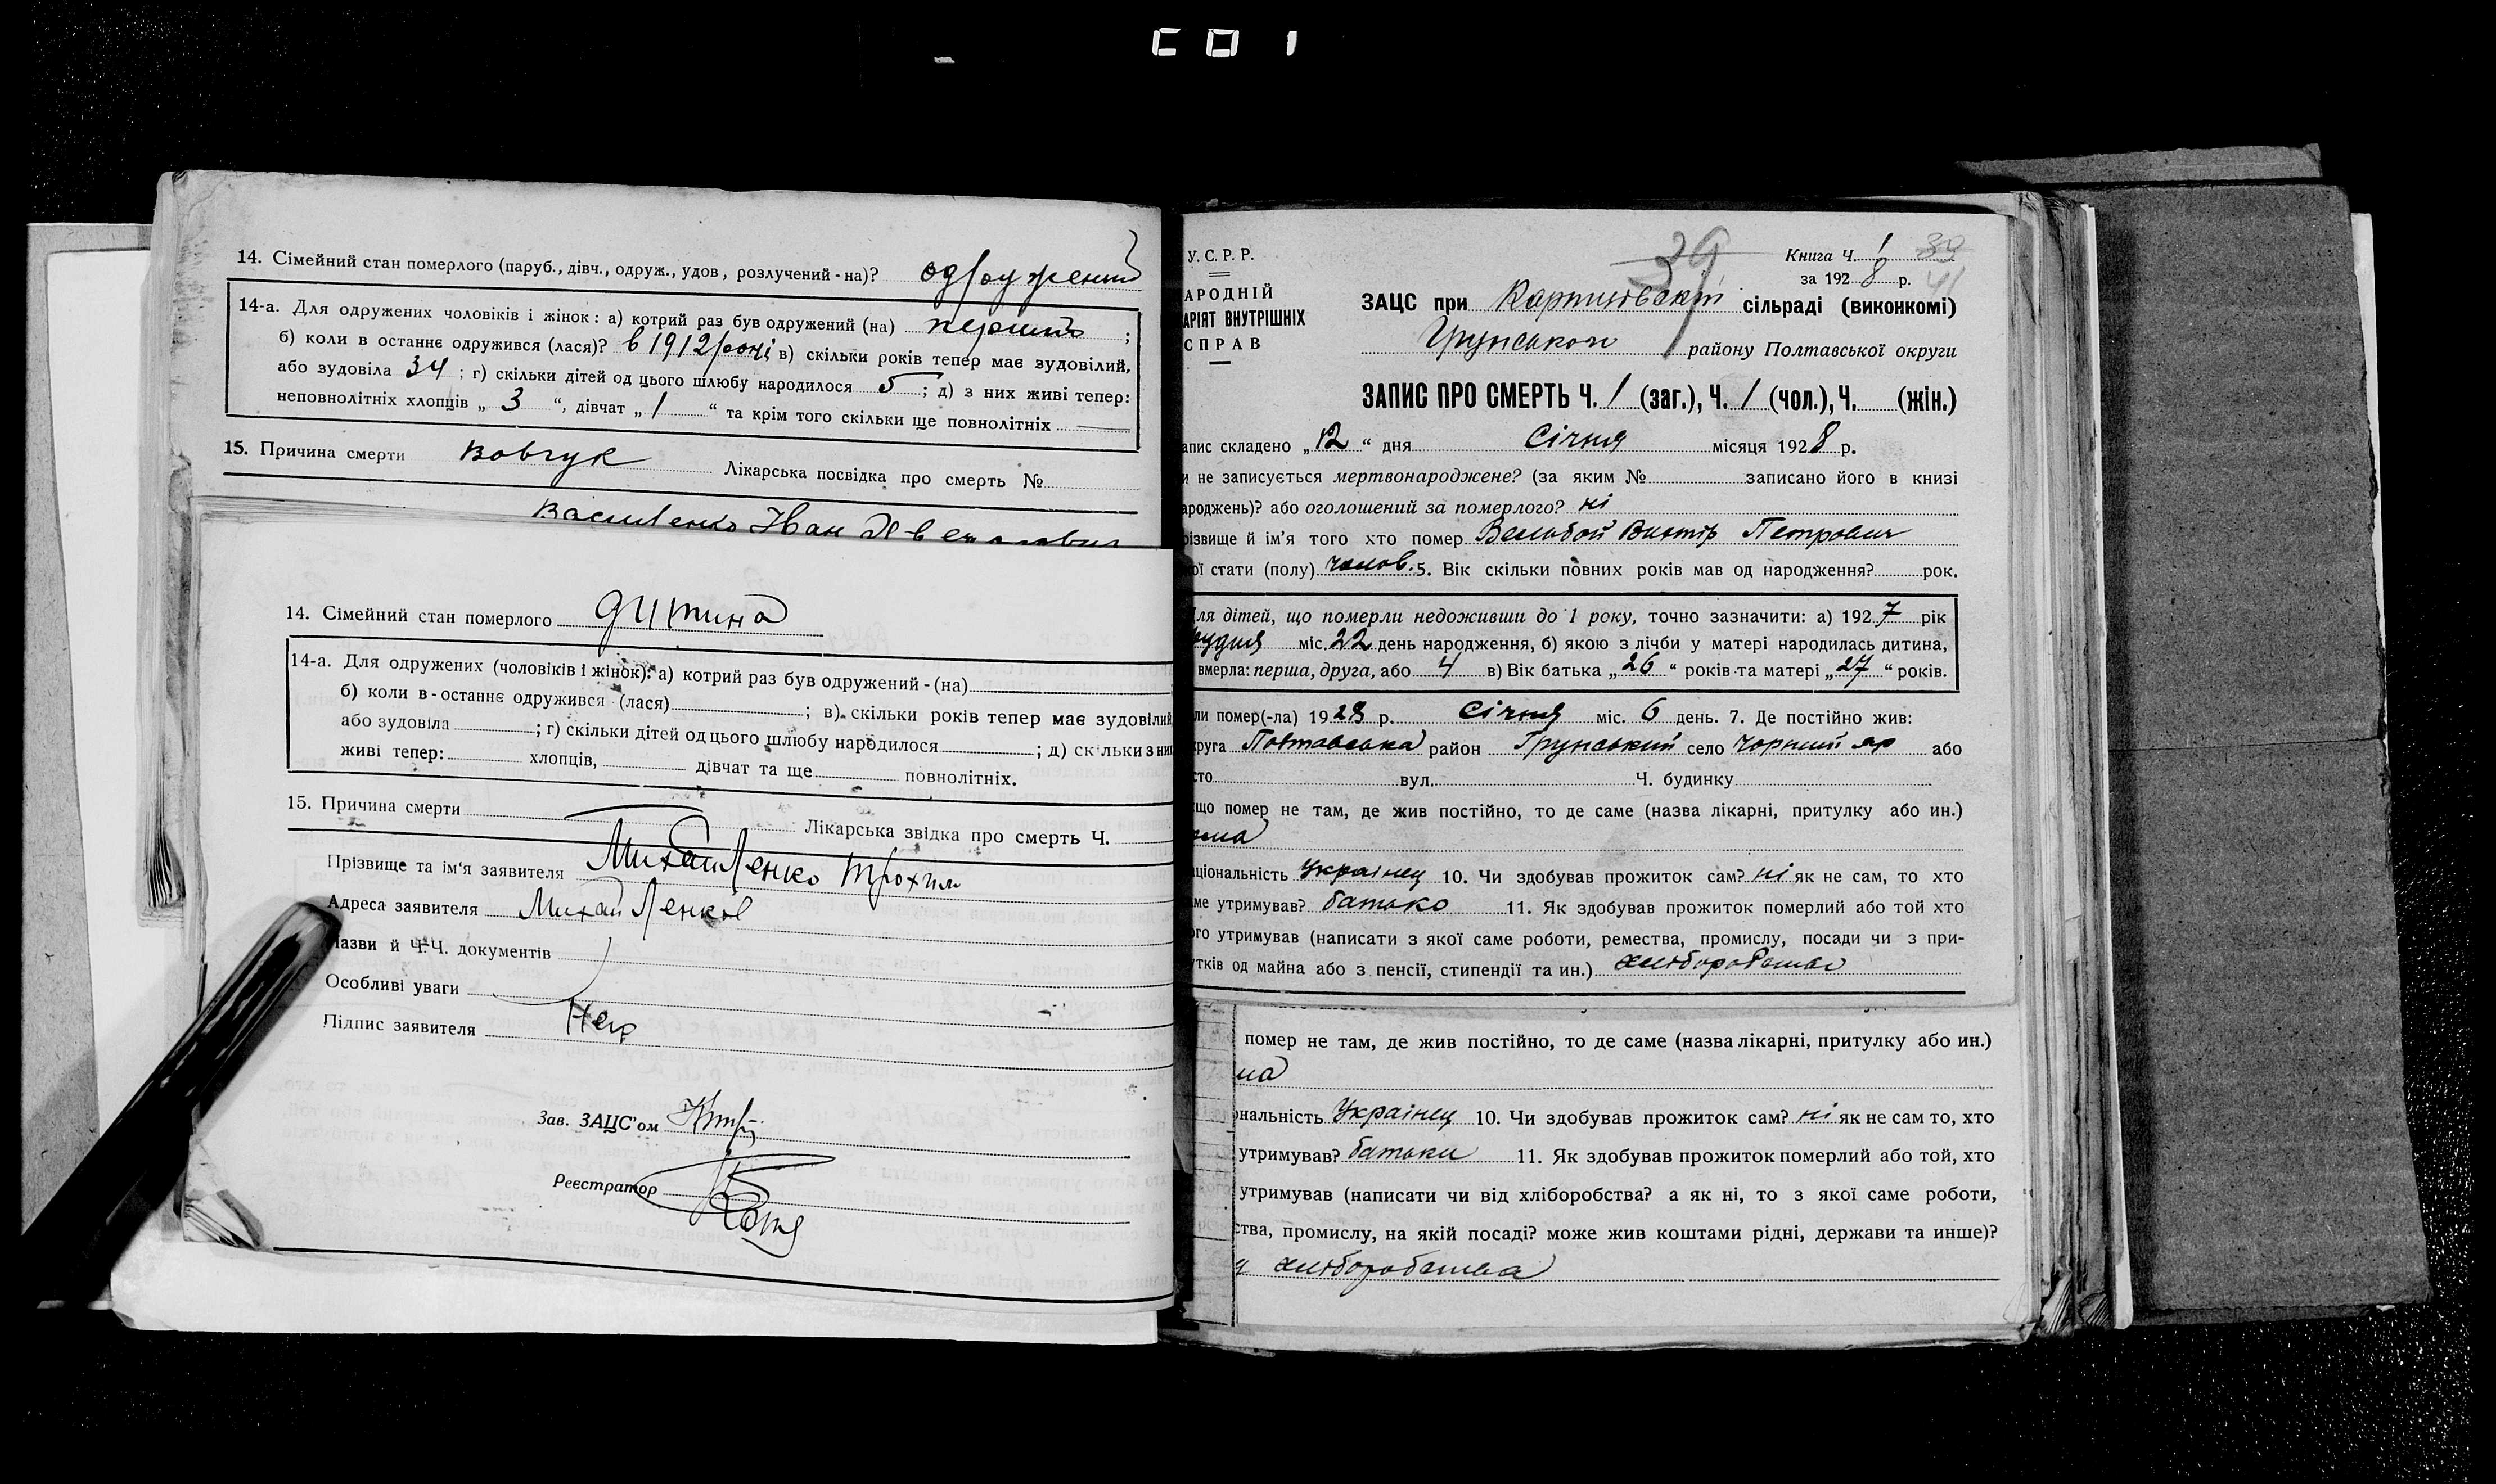 14. Сімейний стан померлого (паруб., дівч., одруж., удов, розлучений - на)? одружений
14-а. Для одружених чоловіків і жінок: а) котрий раз був одружений (на) перший ;
б) коли в останнє одружився (лася)? в 1912 році в) скільки років тепер має зудовілий,
або зудовіла 34 ; г) скільки дітей од цього шлюбу народилося 5 ; д) з них живі тепер:
неповнолітніх хлопців „ 3 “, дівчат „ 1 “ та крім того скільки ще повнолітніх
15. Причина смерти вовчук Лікарська посвідка про смерть №
Василенко Іван
14. Сімейний стан померлого дитина
14-а. Для одружених (чоловіків і жінок): а) котрий раз був одружений - (на)
б) коли в - останнє одружився - (лася) ; в). скільки років тепер має зудовілий
або зудовіла ; г) скільки дітей од цього шлюбу народилося ; д) скільки з них
живі тепер: хлопців, дівчат та ще повнолітніх.
15. Причина смерти Лікарська звідка про смерть Ч.
Прізвище та ім'я заявителя Михайленко Трохим
Адреса заявителя Михайленків
Назви й Ч.Ч. документів
Особливі уваги
Підпис заявителя
Зав. ЗАЦС'ом
Реєстратор
39
Книга Ч. 1 39
за 1928 р. 41
У. С. Р. Р.
АРОДНІЙ
АРІЯТ ВНУТРІШНІХ
СПРАВ
ЗАЦС при сільраді (виконкомі)
Грунського району Полтавської округи
ЗАПИС ПРО СМЕРТЬ Ч. 1 (заг.), Ч. 1 (чол.), Ч. (жін.)
апис складено „12“ дня Січня місяця 1928 р.
и не записується мертвонароджене? (за яким № записано його в книзі
ароджень)? або оголошений за померлого? ні
різвище й ім'я того хто помер Петрович
ої стати (полу) чолов. 5. Вік скільки повних років мав од народження? рок.
Для дітей, що померли недоживши до 1 року, точно зазначити: а) 1927 рік
рудня міс. 22 день народження, б) якою з лічби у матері народилась дитина,
вмерла: перша, друга, або 4 в) Вік батька „26“ років та матері „27“ років.
ли помер(-ла) 1928 р. Січня міс. 6 день. 7. Де постійно жив:
круга Полтавська район Грунський село Чорний яр або
сто вул. Ч. будинку
що помер не там, де жив постійно, то де саме (назва лікарні, притулку або ин.)
ома
аціональність Українец 10. Чи здобував прожиток сам? ні як не сам, то хто
аме утримував? батько 11. Як здобував прожиток померлий або той хто
ого утримував (написати з якої саме роботи, ремества, промислу, посади чи з при-
утків од майна або з пенсії, стипендії та ин.) хліборобства
помер не там, де жив постійно, то де саме (назва лікарні, притулку або ин.)
ма
ональність Українец 10. Чи здобував прожиток сам? ні як не сам то, хто
утримував? батьки 11. Як здобував прожиток померлий або той, хто
утримував (написати чи від хліборобства? а як ні, то з якої саме роботи,
ства, промислу, на якій посаді? може жив коштами рідні, держави та инше)?
хліборобства